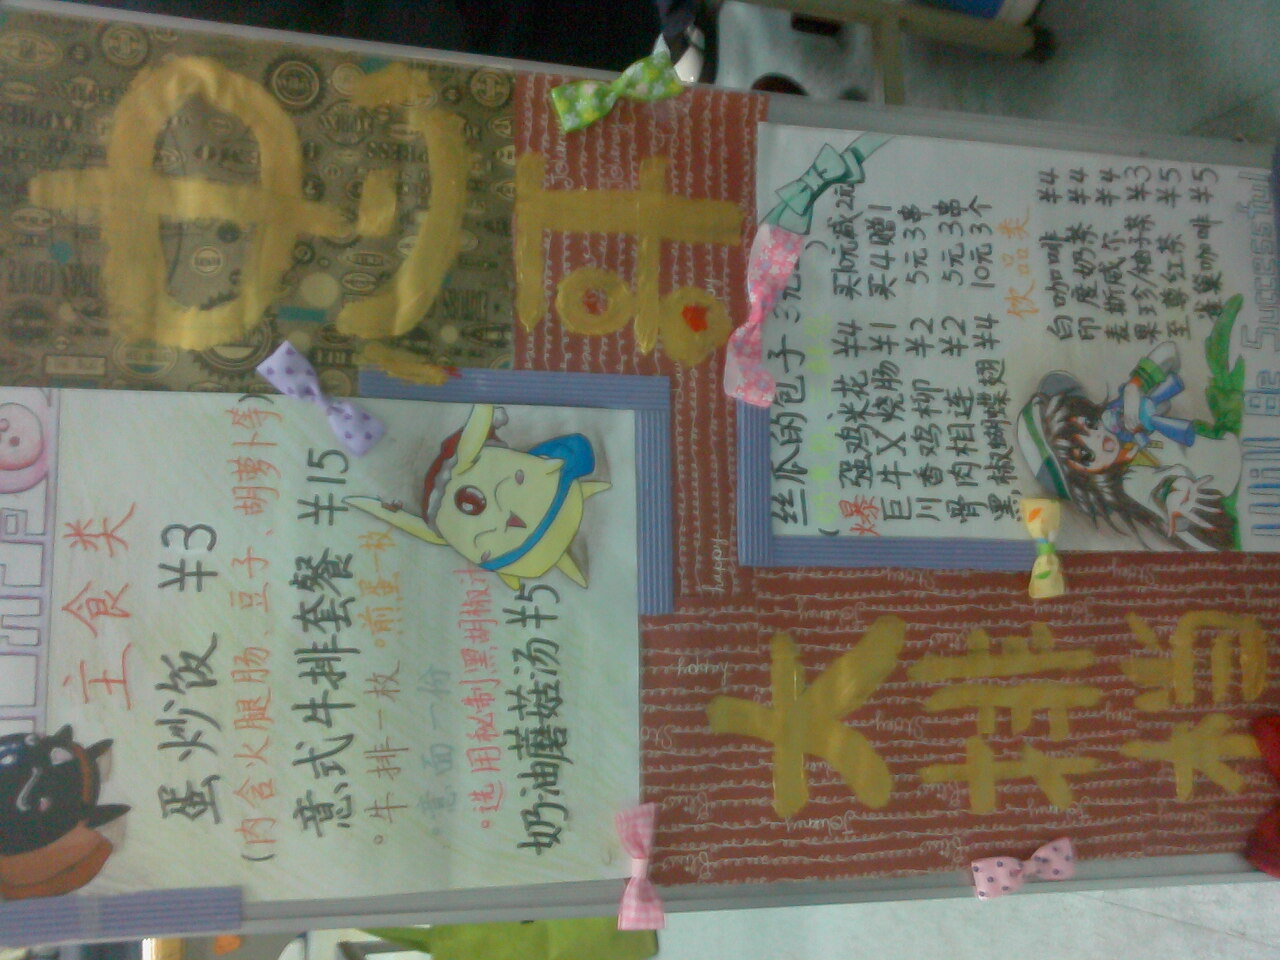 中
大排档
主食类
蛋炒饭 ¥3
(内含火腿肠、豆子、胡萝卜等)
意式牛排套餐 ¥15
。牛排一枚 。煎蛋一枚
。意面一份
。选用秘制黑胡椒汁
奶油蘑菇汤 ¥5
丝瓜的包子 3元
爆强鸡米花 ¥4 买10元减2元
巨牛X烧肠 ¥1 买4赠1
川香鸡柳 ¥2 5元3串
骨肉相连 ¥2 5元3串
黑椒蝴蝶翅 ¥4 10元3个
饮品类
白咖啡 ¥4
印度奶茶 ¥4
麦斯威尔 ¥4
果珍/柚子茶 ¥3
至尊红茶 ¥5
雀巢咖啡 ¥5
Will Be Successful
happy
happy